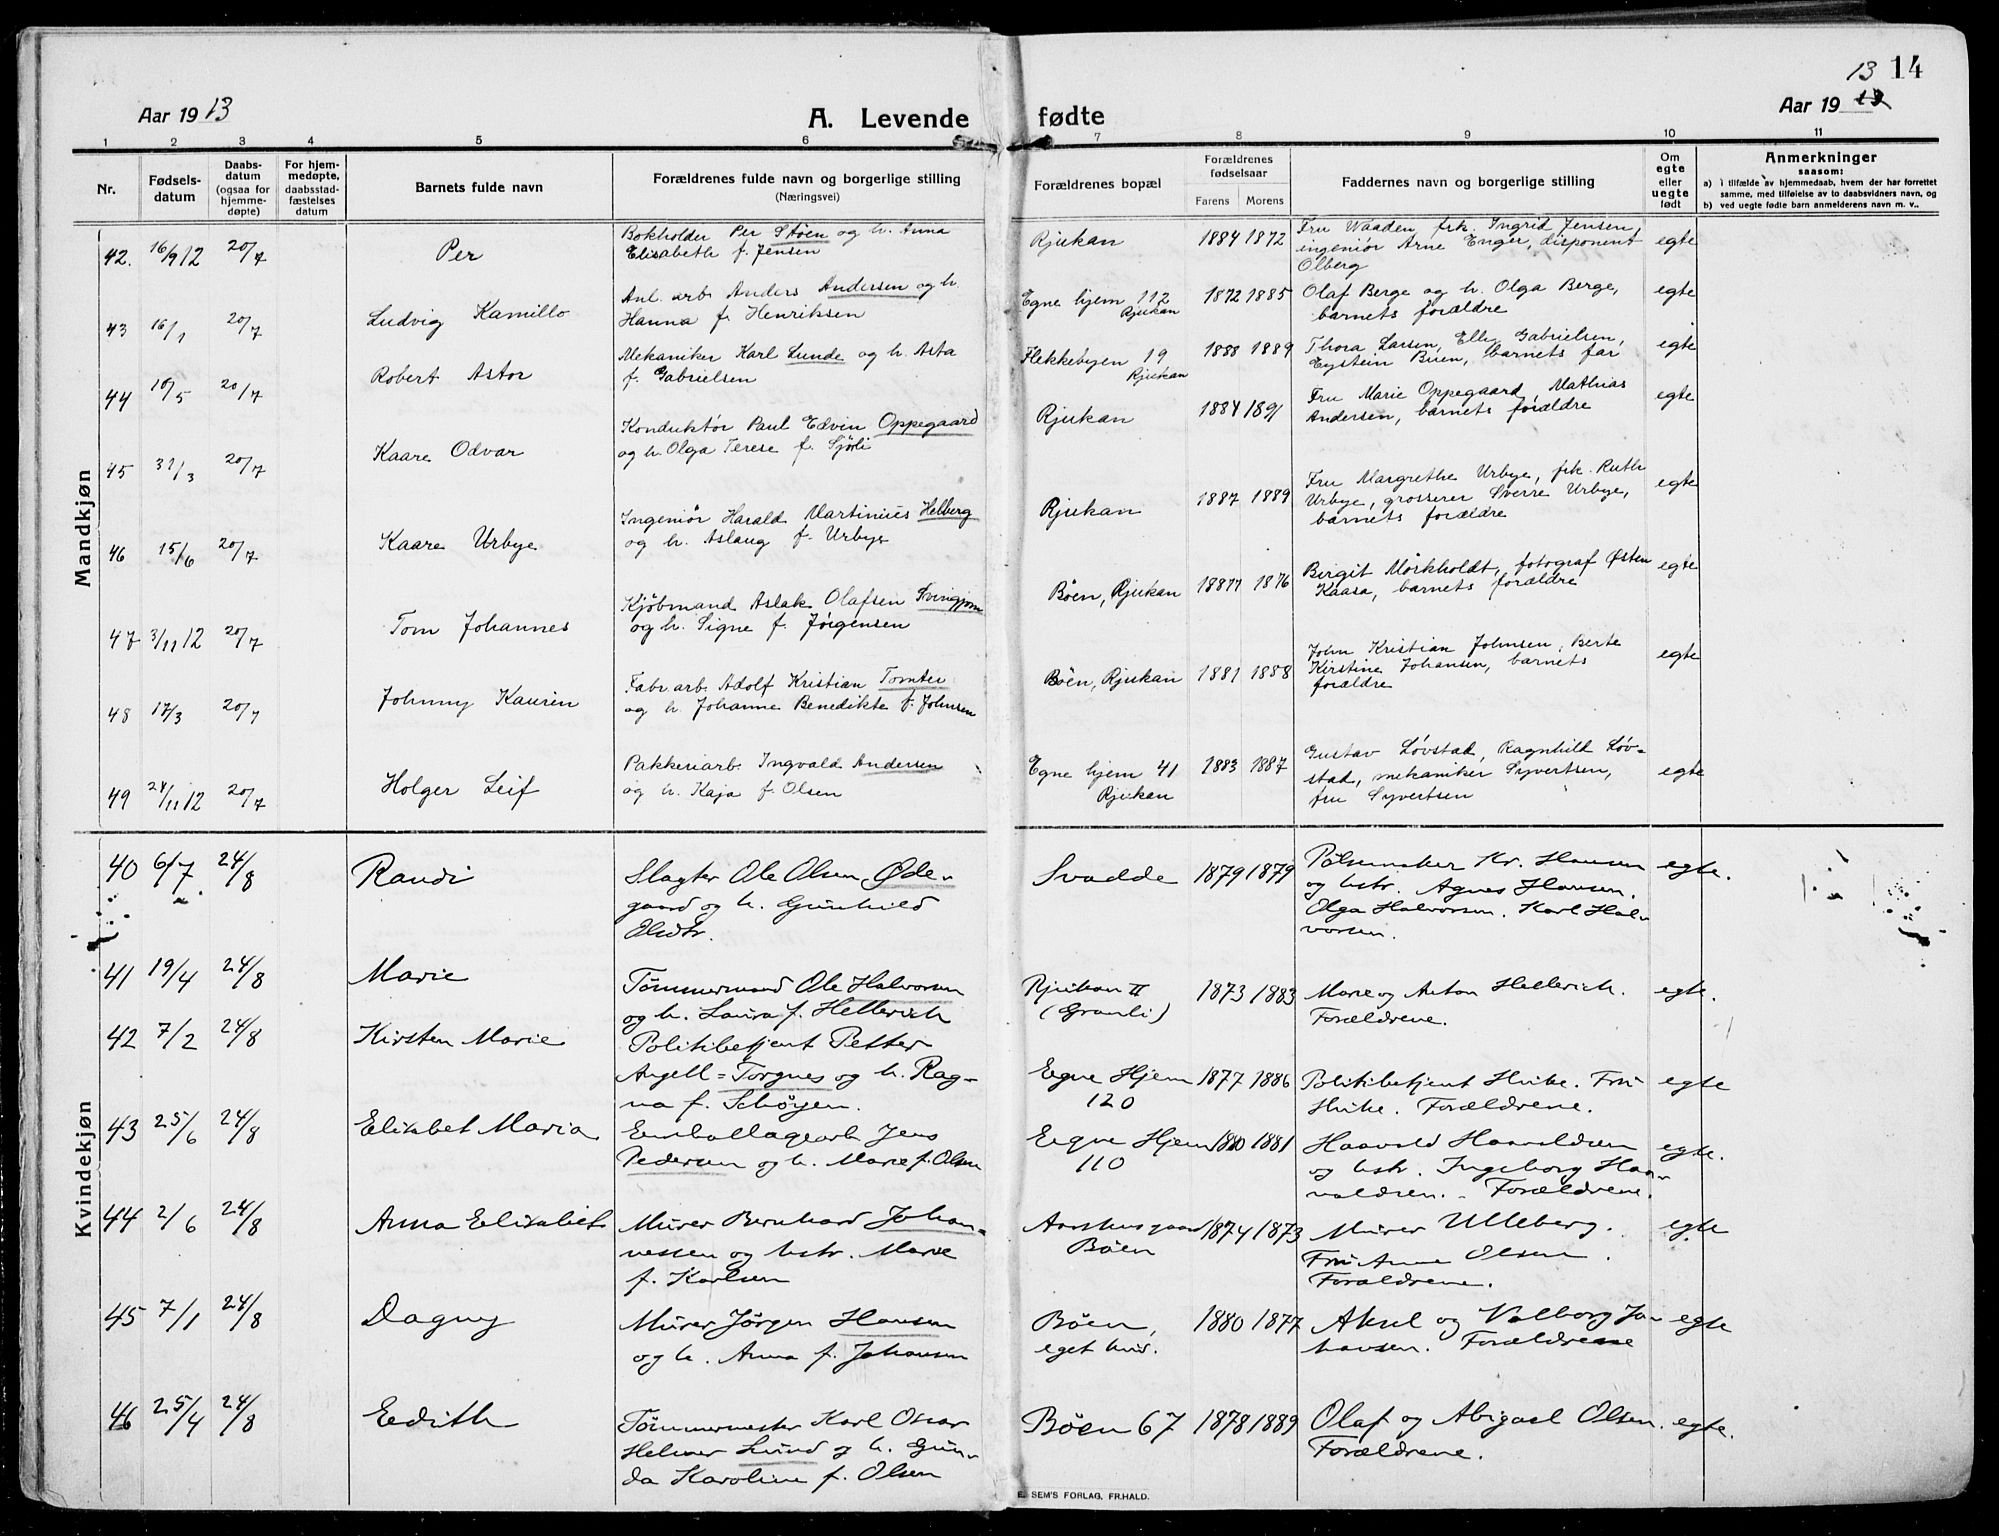 13 14
Aar 1913 A. Levende fødte Aar 19
1 2 3 4 5 6 7 8 9 10 11
Nr. Fødselsdatum Daabsdatum (ogsaa for hjemmedøpte) For hjemmedøpte, daabsstadfæstelses datum Barnets fulde navn Forældrenes fulde navn og borgerlige stilling (Næringsvei) Forældrenes bopæl Forældrenes fødselsaar Farens Morens Faddernes navn og borgerlige stilling Om egte eller uegte født Anmerkninger saasom:
a) i tilfælde av hjemmedaab, hvem der har forrettet samme, med tilføielse av to daabsvidners navn, og
b) ved uegte fødte barn anmelderens navn m. v..
Mandkjøn
42. 16/9 12 20/7 Per Bokholder Per Støen og h. Anna Rjukan 1884 1872 Fru Waaden frk. Ingrid Jensen, egte
Elisabeth f. Jensen ingeniør Arne Enger, disponent
Olberg
43 16/1 20/7 Ludvig Kamillo Anl. arb. Anders Andersen og h. Egne hjem 112 1872 1885 Olaf Berge og h. Olga Berge, egte
Hanna f. Henriksen Rjukan barnets forældre
44 10/5 20/7 Robert Astor Mekaniker Karl Lunde og h. Asta Flekkebyen 19 1888 1889 Thora Larsen, Elle Gabrielsen, egte
f. Gabrielsen Rjukan Eystein Buen, barnets far
45 31/3 20/7 Kaare Odvar Konduktør Paul Edvin Oppegaard Rjukan 1884 1891 Fru Marie Oppegaard, Mathias egte
og h. Olga Terese f. Sjøli Andersen, barnets forældre
46 15/6 20/7 Kaare Urbye Ingeniør Harald Martinius Helberg Rjukan 1887 1889 Fru Margrethe Urbye, frk. Ruth egte
og h. Aslaug f. Urbye Urbye, grosserer Sverre Urbye,
barnets forældre
47 3/11 12 20/7 Tom Johannes Kjøbmand Aslak Olafsen Bøen, Rjukan 1876 Birgit Mørkholdt, fotograf Østen egte
og h. Signe f. Jørgensen Kaasa, barnets forældre
48 17/3 20/7 Johnny Kaurin Fabr. arb. Adolf Kristian Tomter Bøen, Rjukan 1881 1888 John Kristian Johnsen, Berte egte
og h. Johanne Benedikte f. Johnsen Kirstine Johansen, barnets
forældre
49 24/11 12 20/7 Holger Leif Pakkeriarb. Ingvald Andersen Egne hjem 41 1883 1887 Gustav Løvstad, Ragnhild Løv- egte
og h. Kaja f. Olsen Rjukan stad, mekaniker Syvertsen,
fru Syvertsen
Kvindekjøn
40 6/7. 24/8 Randi Slagter Ole Olsen Øde- Svadde 1879 1879 Pølsemaker Kr. Hansen egte.
gaard og h. Gunhild og hstr. Agnes Hansen.
Olsdtr. Olga Halvorsen. Karl Hal-
vorsen.
41 19/4 24/8 Marie Tømmermand Ole Halvorsen Rjukan II 1873 1883 Marie og Anton Hellerich. egte.
og h. Laura f. Hellerich (Granli) Forældrene.
42 7/2 24/8 Kirsten Marie Politibetjent Petter Egne Hjem 1877 1886 Politibetjent Hvibe. Fru egte
Angell-Torgnes og h. Rag- 120 Hvibe. Forældrene.
na f. Schøyen.
43 25/6 24/8 Elisabet Maria Emballagearb. Jens Egne Hjem 1880 1881 Haavald Haavaldsen egte.
Pedersen og h. Marie f. Olsen 110 og hstr. Ingeborg Haa-
valdsen. Forældrene.
44 2/6 24/8 Anna Elisabet Murer Bernhard Johan- Aarshusgaard 1874 1873 Murer Ulleberg. egte
nessen og hstr. Marie Bøen Fru Anna Olsen.
f. Karlsen Forældrene.
45 7/1 24/8 Dagny Murer Jørgen Hansen Bøen, 1880 1877 Aksel og Valborg Jo- egte
og h. Anna f. Johansen eget hus. hansen. Forældrene
46 25/4 24/8 Edith Tømmermester Karl Oscar Bøen 67 1878 1889 Olaf og Abigael Olsen. egte.
Helmer Lund og h. Gun- Forældrene.
da Karoline f. Olsen
E. SEM'S FORLAG, FR.HALD.